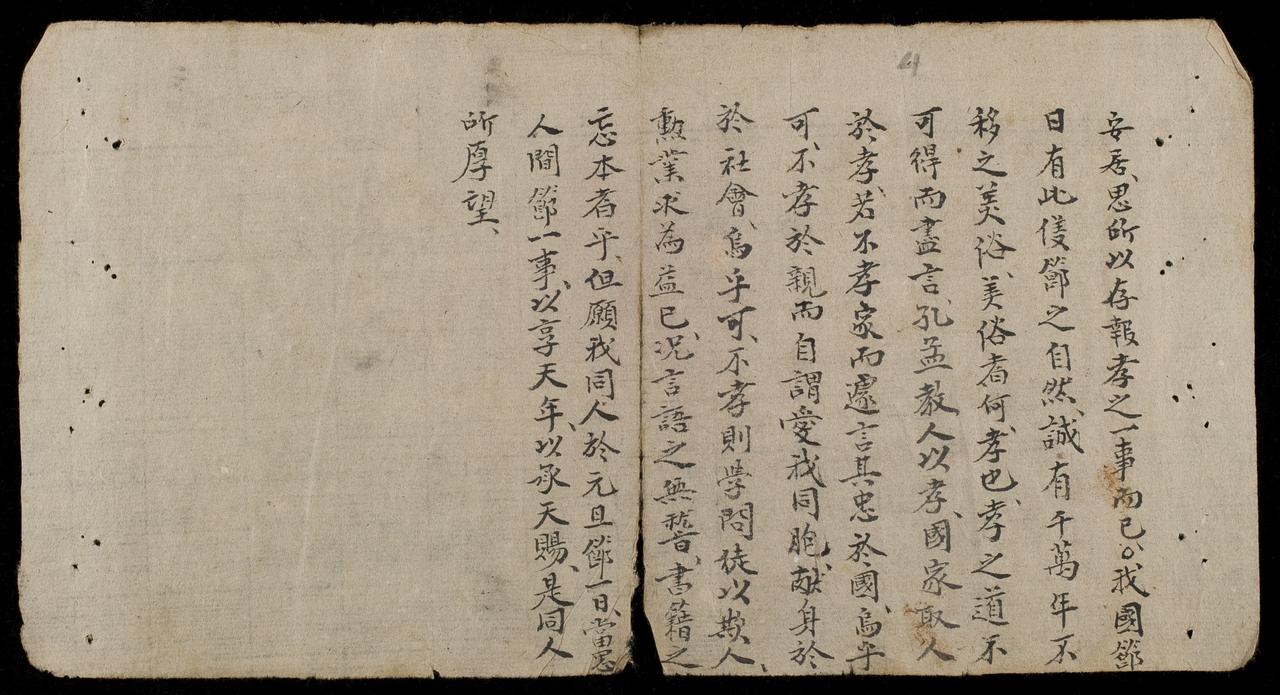 4
安居、思所以存報孝之一事而已。我國節
日有此佳節之自然、誠有千萬年不
移之美俗、美俗者何、孝也、孝之道不
可得而盡言、孔孟教人以孝、國家取人
於孝、若不孝家而遽言其忠於國、烏乎
可、不孝於親而自謂愛我同胞、献身於
於社會、烏乎可、不孝則學問徒以欺人、
勲業求為益已、况言語之無稽、書籍之
忘本者乎、但願我同人於元旦節一日、當思
人間節一事、以享天年、以承天賜、是同人
所厚望、